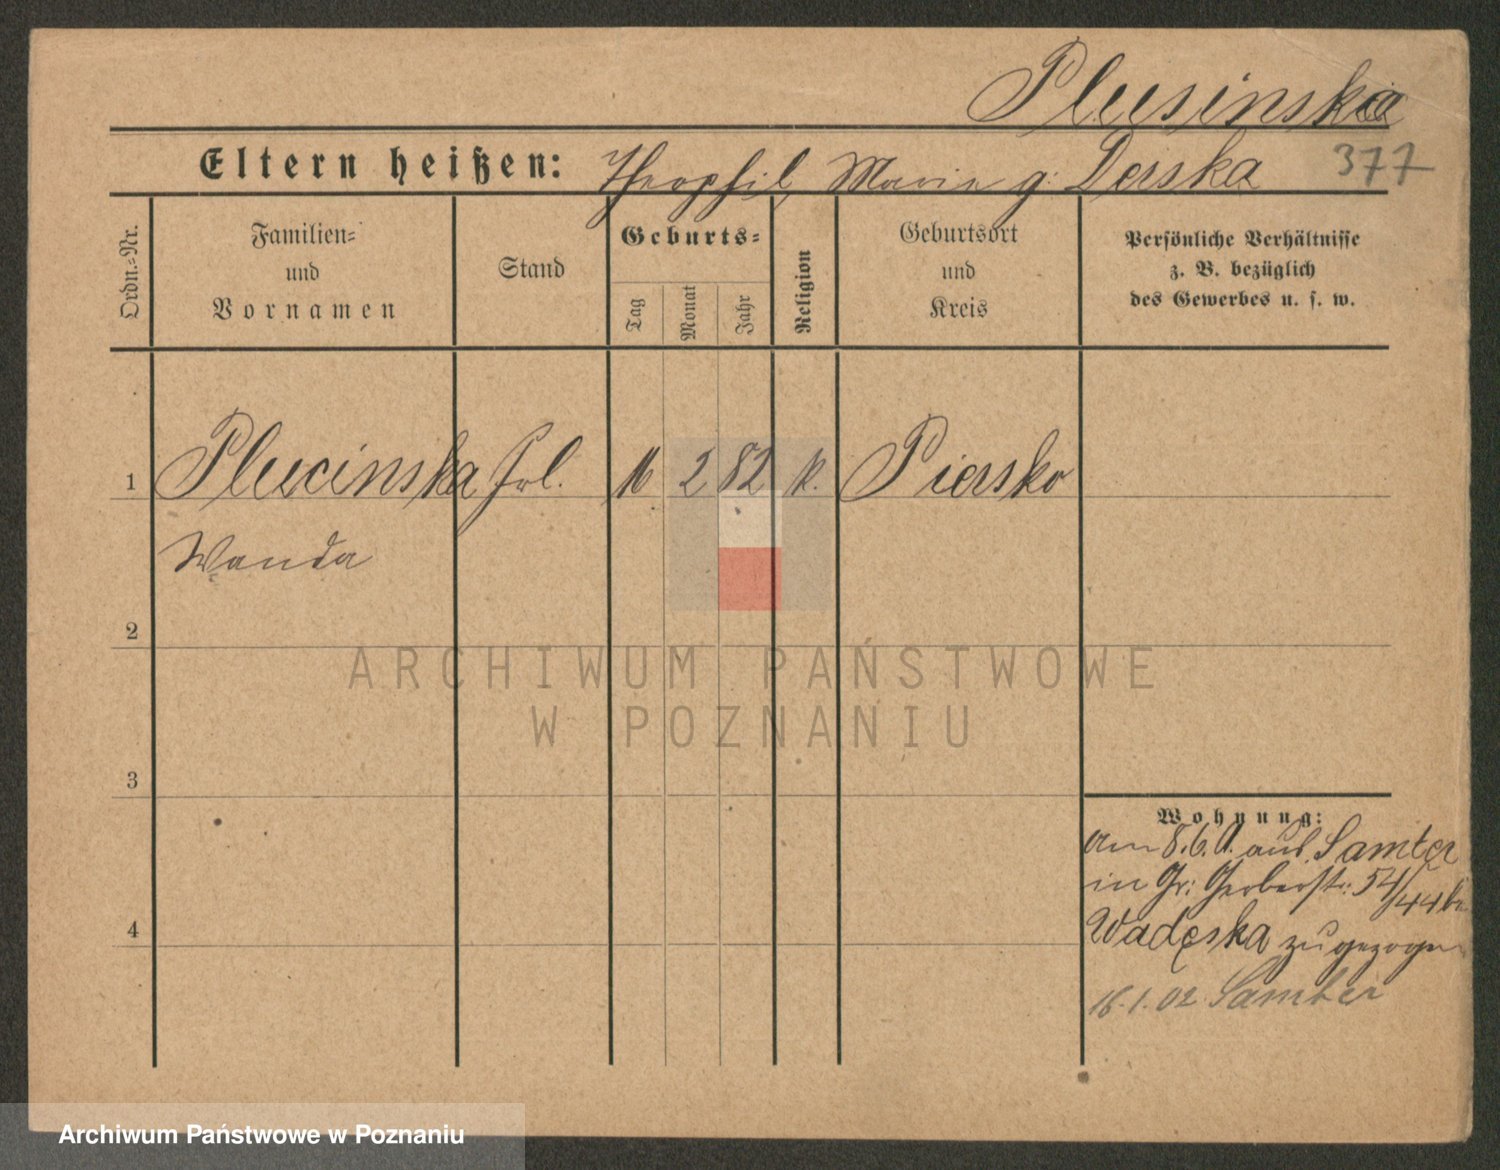 Plusinska
Eltern heißen: Theophil, Marie g. Derska 377
Ordn.=Nr.
Familien=
und
Vornamen
Stand
Geburts=
Tag
Monat
Jahr
Religion
Geburtsort
und
Kreis
Persönliche Verhältnisse
z. B. bezüglich
des Gewerbes u. s. w.
1 Plucinska Frl. 16 2 82 k. Piersko
Wanda
2
3
4
Wohnung:
am 8.6. aus Samter
in Gr: Gerberstr: 54/44 bei
Wadęska zugezogen
16.1.02 Samter
ARCHIWUM PAŃSTWOWE
W POZNANIU
Archiwum Państwowe w Poznaniu